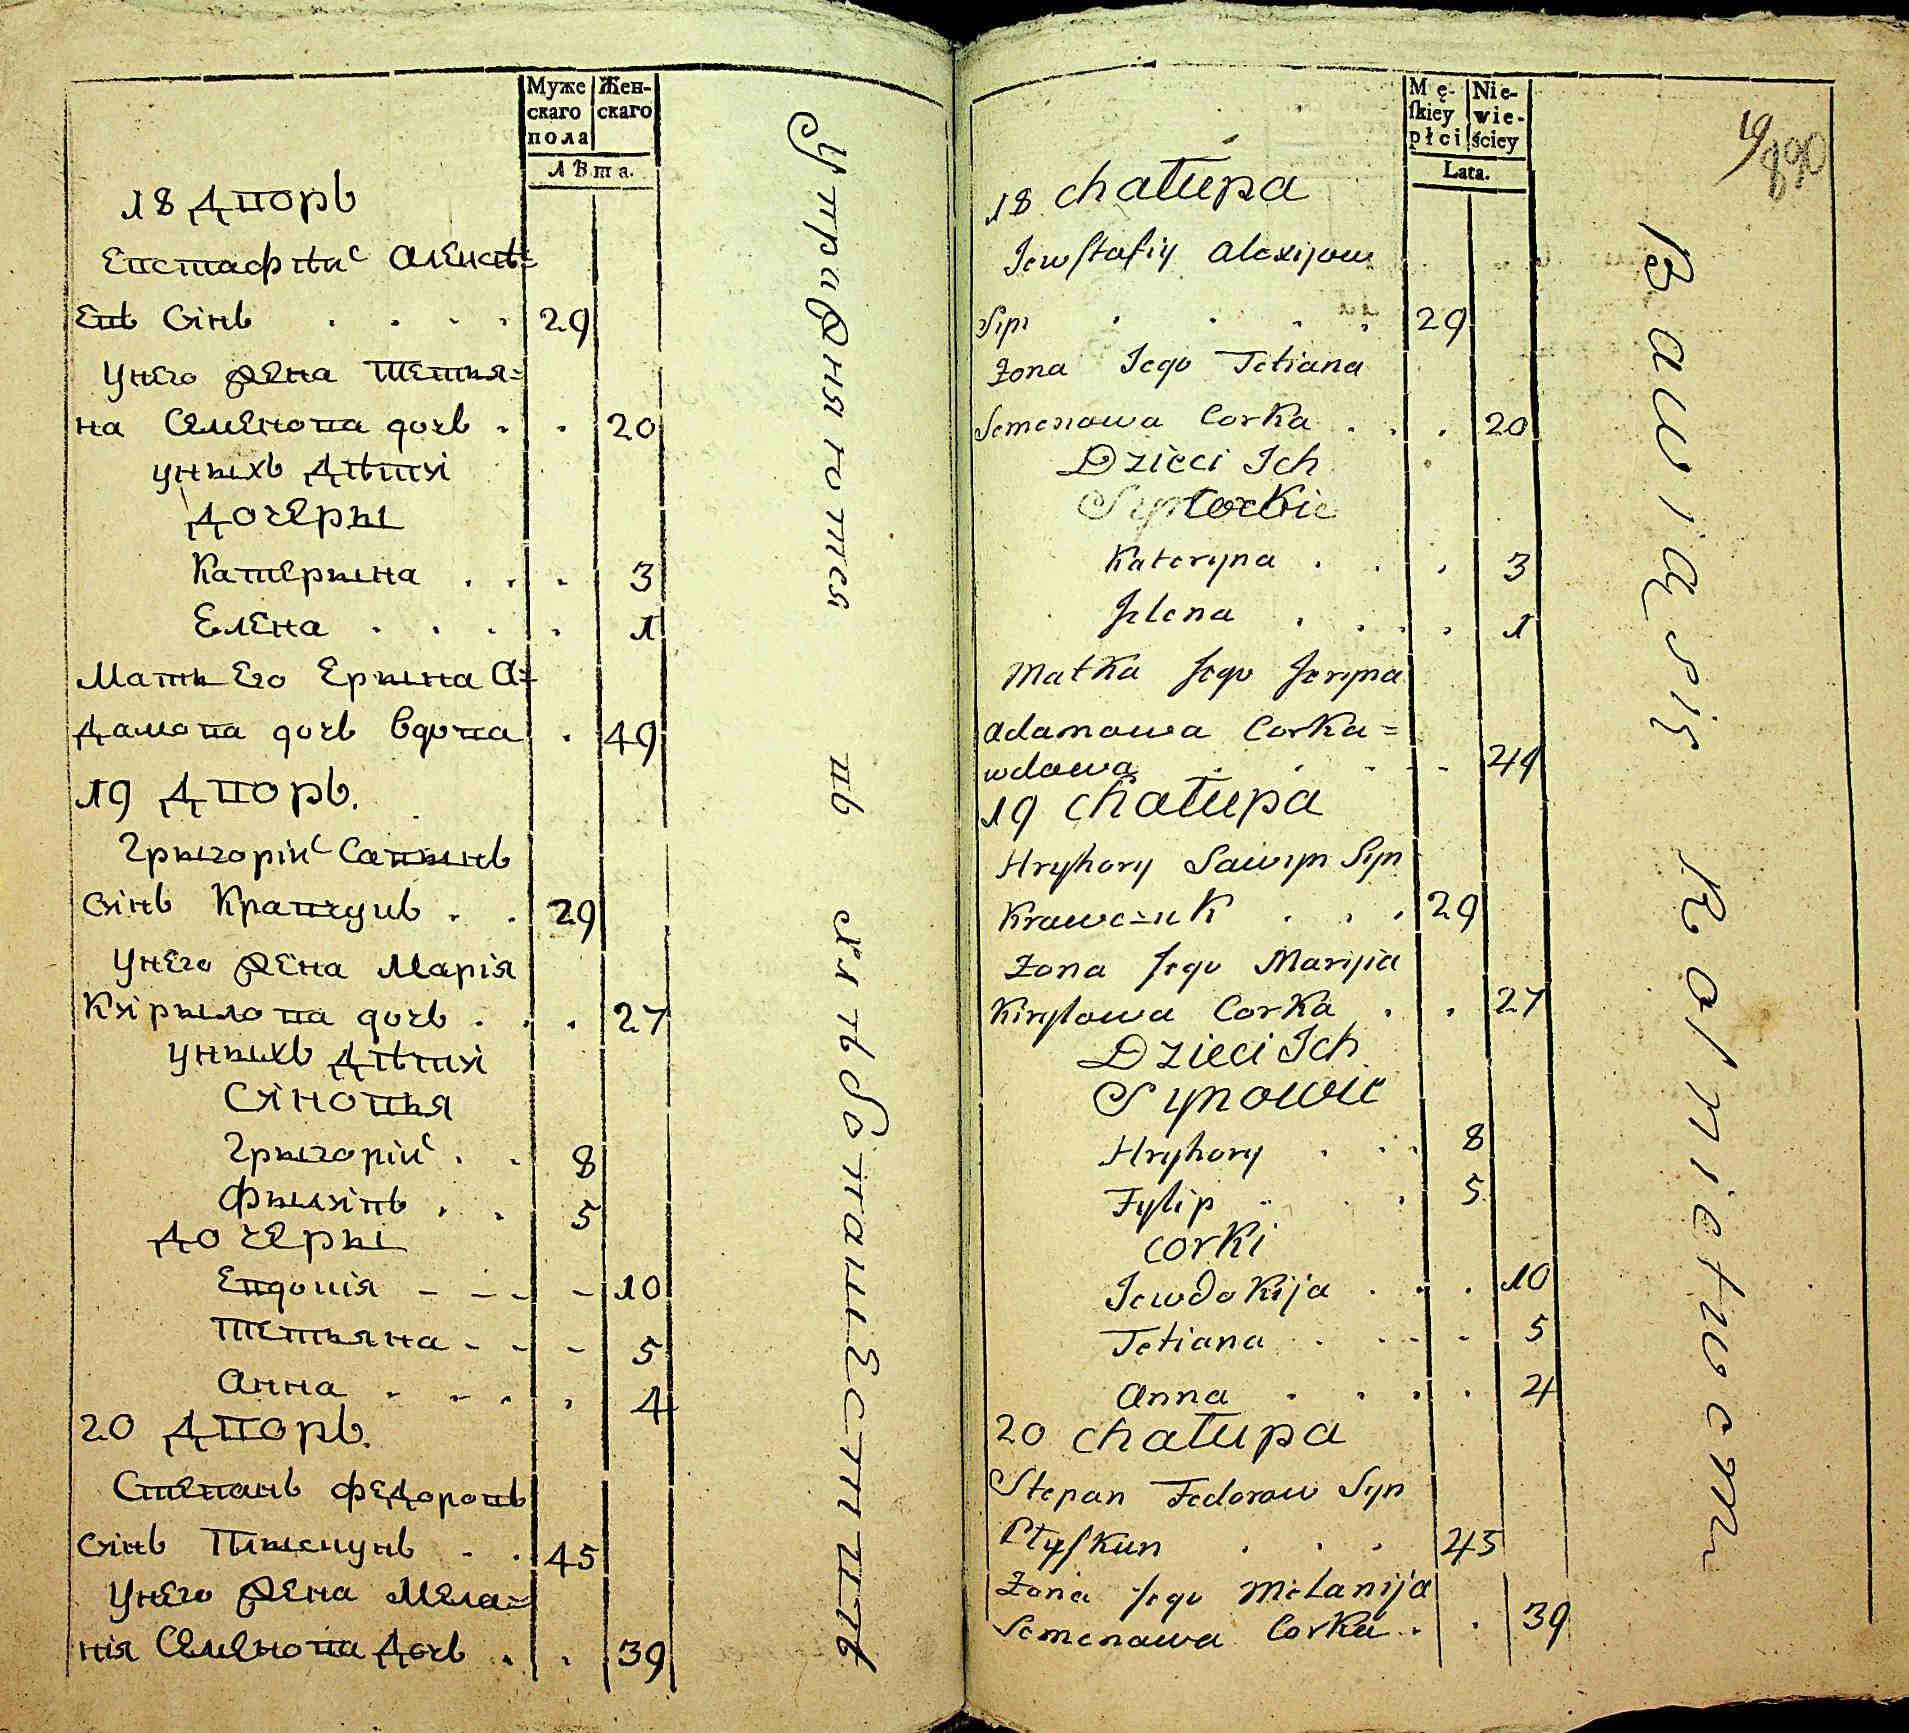 Муже
скаго
пола
Жен-
скаго
Лѣта.
18 Дворъ
Евстафѣй Алексѣ=
евъ Сінъ . . . . 29
Унего Жена Тетья=
на Семенова дочь . . 20
уныхъ Дѣти
Дочеры
Катерына . . . 3
Елена . . . . 1
Мать Его Ерына А=
дамова дочь вдова . 49
19 Дворъ.
Грыгорій Савынъ
Сінъ Кравчукъ . . 29
Унего Жена Марія
Кирылова дочь . . . 27
уныхъ Дѣти
Синовья
Грыгорій . . 8
Филипъ . . 5
Дочеры
Евдокія - - - - 10
Тетьяна - - - 5
Анна . . . . . 4
20 Дворъ.
Степанъ Федоровъ
Сінъ Птыскунъ . . 45
Унего Жена Мела=
нія Семенова Дочь . . 39
Упражняются въ хлѣбопашествѣ
Mę-
skiey
płci
Nie-
wie-
ściey
Lata.
19
890
18 chałupa
Jewstafiy Alexijow
Syn . . . . 29
Żona Jego Tetiana
Semenowa Corka . . . 20
Dzieci Ich
Corkie
Kateryna . . . 3
Jelena . . . . 1
Matka Jego Jeryna
Adamowa Corka =
wdowa . . . - - 49
19 chałupa
Hryhory Sawyn Syn
Krawczuk . . . 29
Żona Jego Maryia
Kiryłowa Corka . . 27
Dzieci Ich
Synowie
Hryhory . . . 8
Fylip . . . 5
corki
Jewdokija . . . 10
Tetiana . . - - 5
Anna . . . . 4
20 chałupa
Stepan Fedorow Syn
Ptyskun . . . 45
Żona Jego Melanija
Semenowa Corka . . 39
Bawią się Rolnictwem